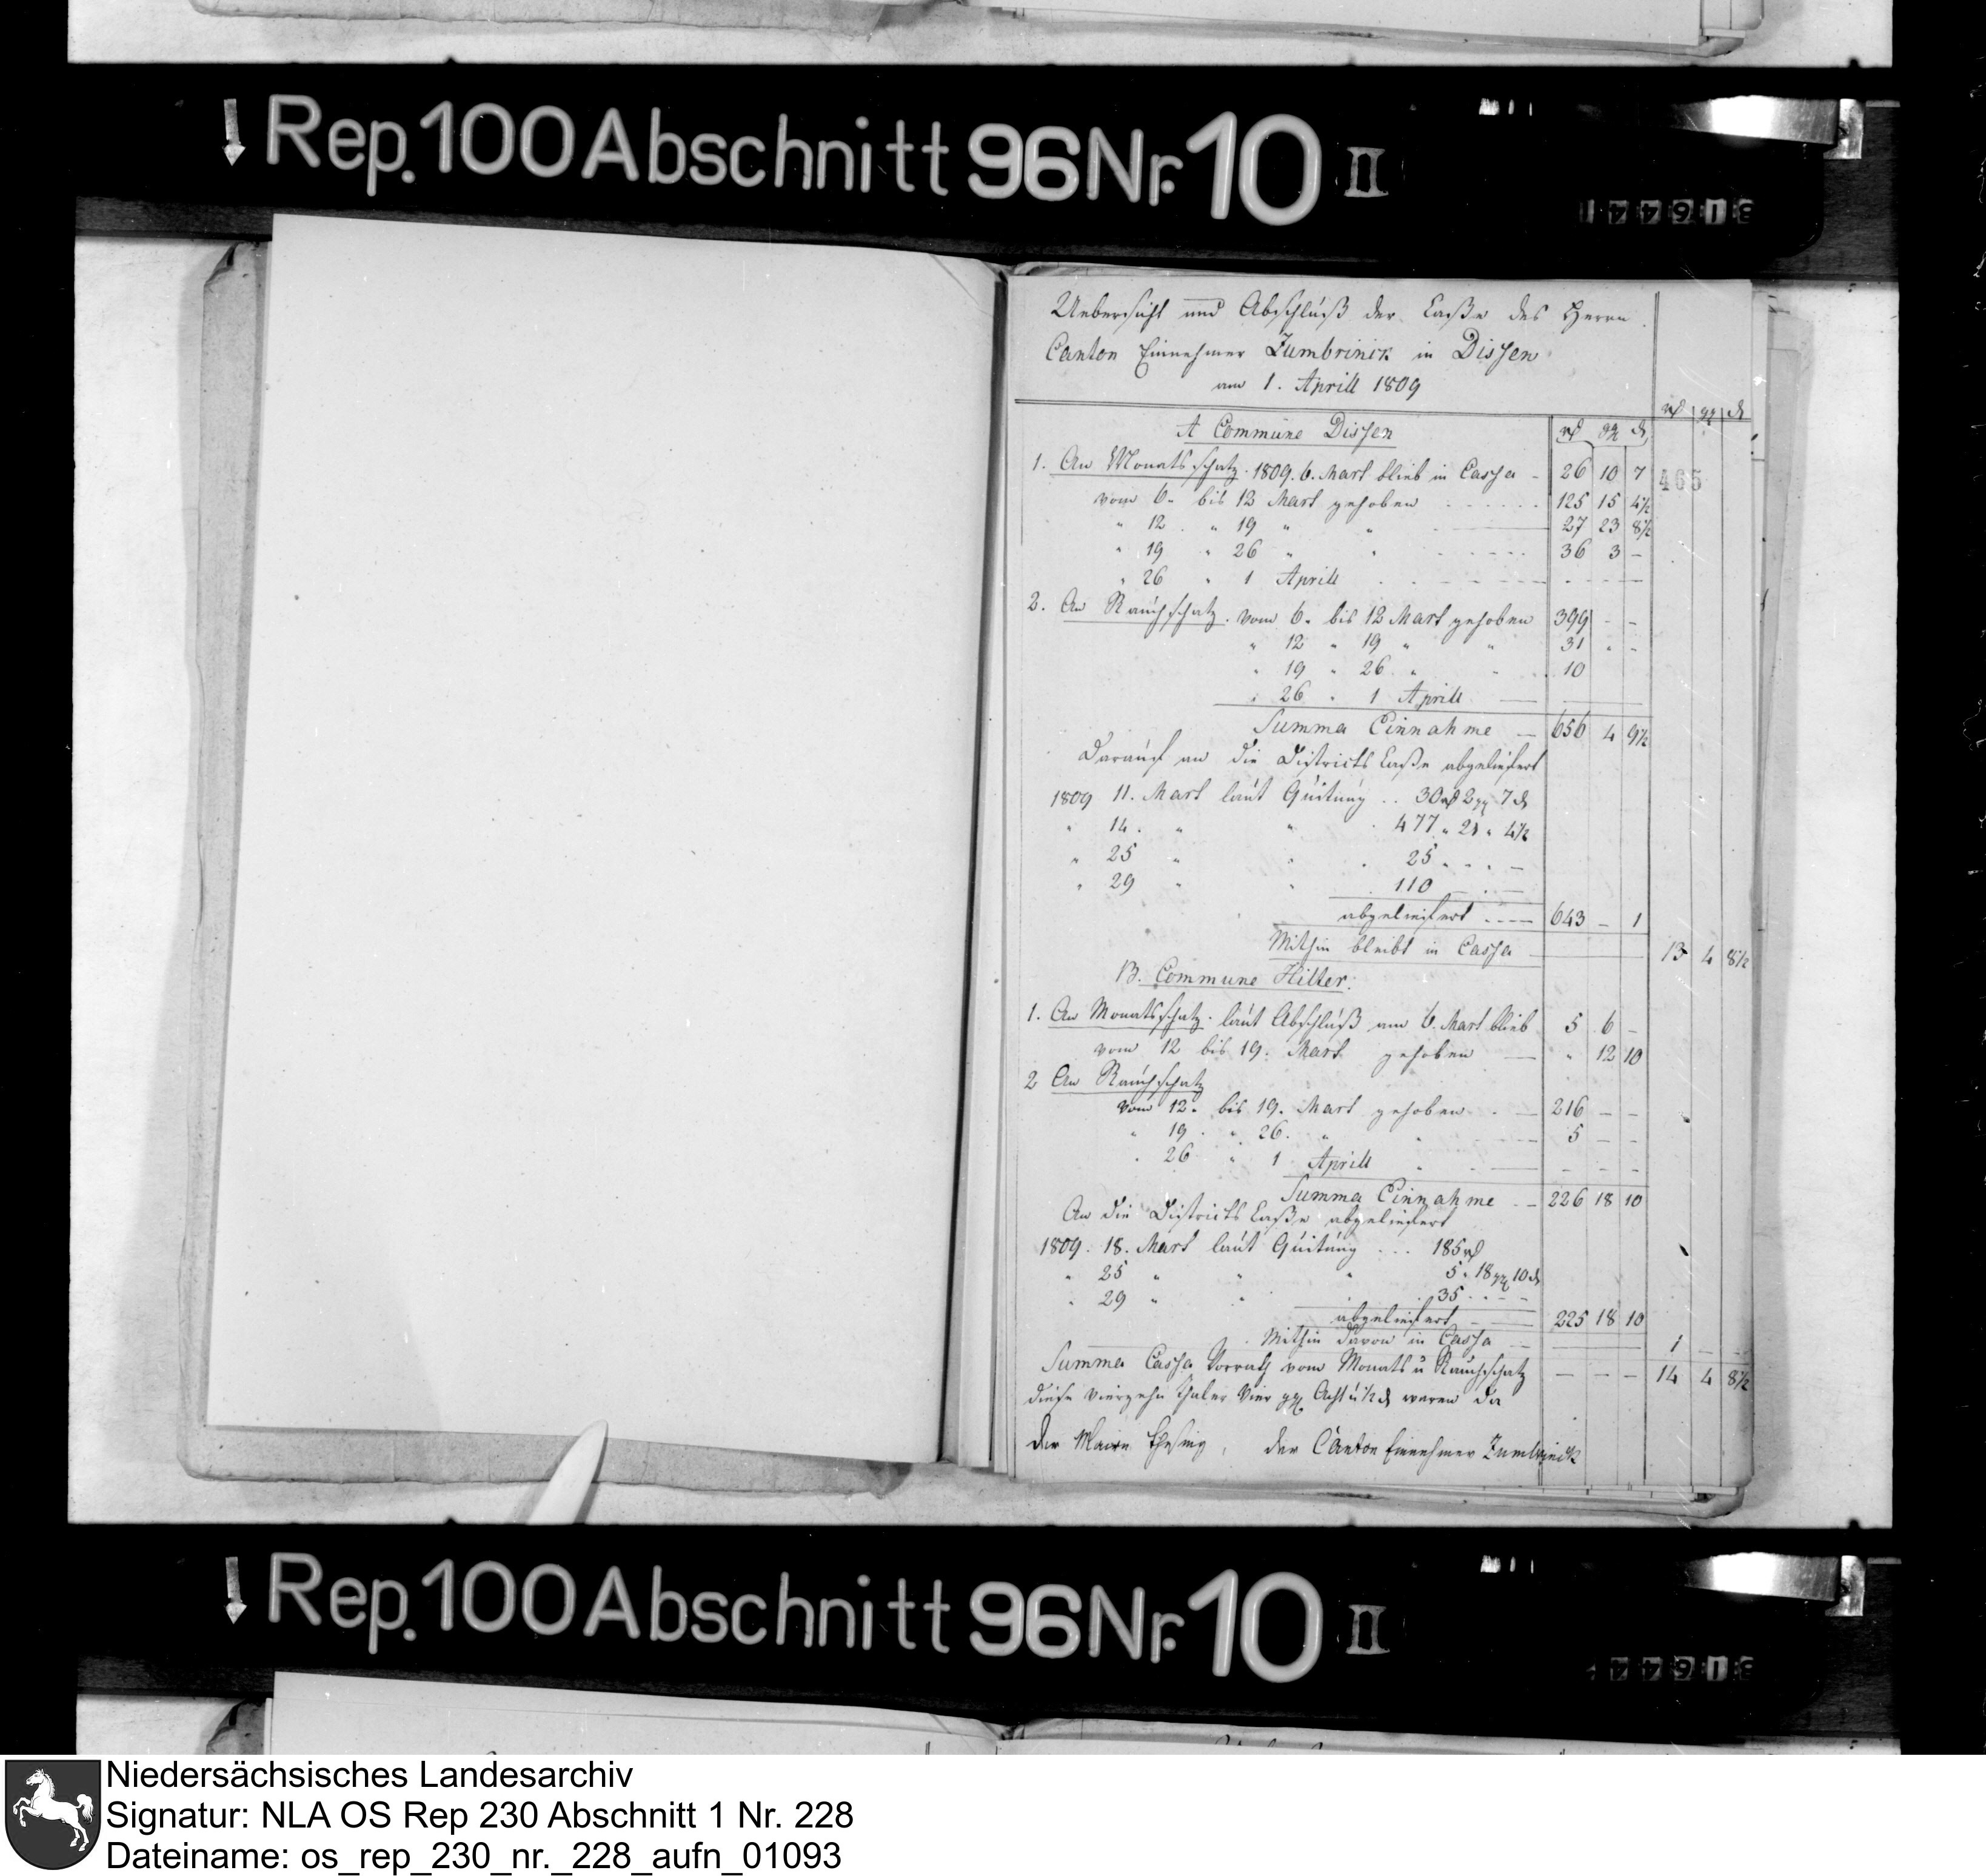 Rep. 100 Abschnitt 96 Nr. 10 II
Uebersicht und Abschluß der Caße des Herrn
Canton Einnehmer Zumbrinck in Dissen
am 1. Aprill 1809
rth ggr d
A Commune Dissen rth ggr d
1. An Monatsschatz. 1809. 6. Mart blieb in Cassa - 26 10 7
465
vom 6. bis 12 Mart gehoben ...... 125 15 4½
" 12. " 19 " " 27 23 8½
" 19 " 26 " " 36 3 -
" 26 " 1 Aprill
2. An Rauchschatz. vom 6. bis 12 Mart gehoben 399 - -
" 12 " 19 " " 31 - -
" 19 " 26 " " 10
" 26 " 1 Aprill
Summa Einnahme - 656 4 9½
Darauf an die Districts Caße abgeliefert
1809 11. Mart laut Quitung .. 30 rth 2 ggr 7 d
" 14. " " 477 " 21 " 4½
" 25 " " 25 " - -
" 29 " " 110 - -
abgeliefert ---- 643 - 1
Mithin bleibt in Cassa - 13 4 8½
B. Commune Hilter.
1. An Monatsschatz. laut Abschluß am 6. Mart blieb 5 6 -
vom 12 bis 19. Mart gehoben — " 12 10
2 An Rauchschatz
vom 12. bis 19. Mart gehoben - — 216 - -
" 19. " 26. " " 5 - -
" 26 " 1 Aprill " - - -
Summa Einnahme - 226 18 10
An die Districts Caße abgeliefert
1809. 18. Mart laut Quitung ... 185 rth
" 25 " " " 5 " 18 ggr 10 d
" 29 " " " 35 - -
abgeliefert — 225 18 10
Mithin davon in Cassa — 1 - -
Summa Cassa Vorrath vom Monats u Rauchschatz - - - 14 4 8½
diese vierzehn thaler vier ggr Acht u ½ d waren da
Der Maire der Canton Einnehmer Zumbrinck
Rep. 100 Abschnitt 96 Nr. 10 II
Niedersächsisches Landesarchiv
Signatur: NLA OS Rep 230 Abschnitt 1 Nr. 228
Dateiname: os_rep_230_nr._228_aufn_01093